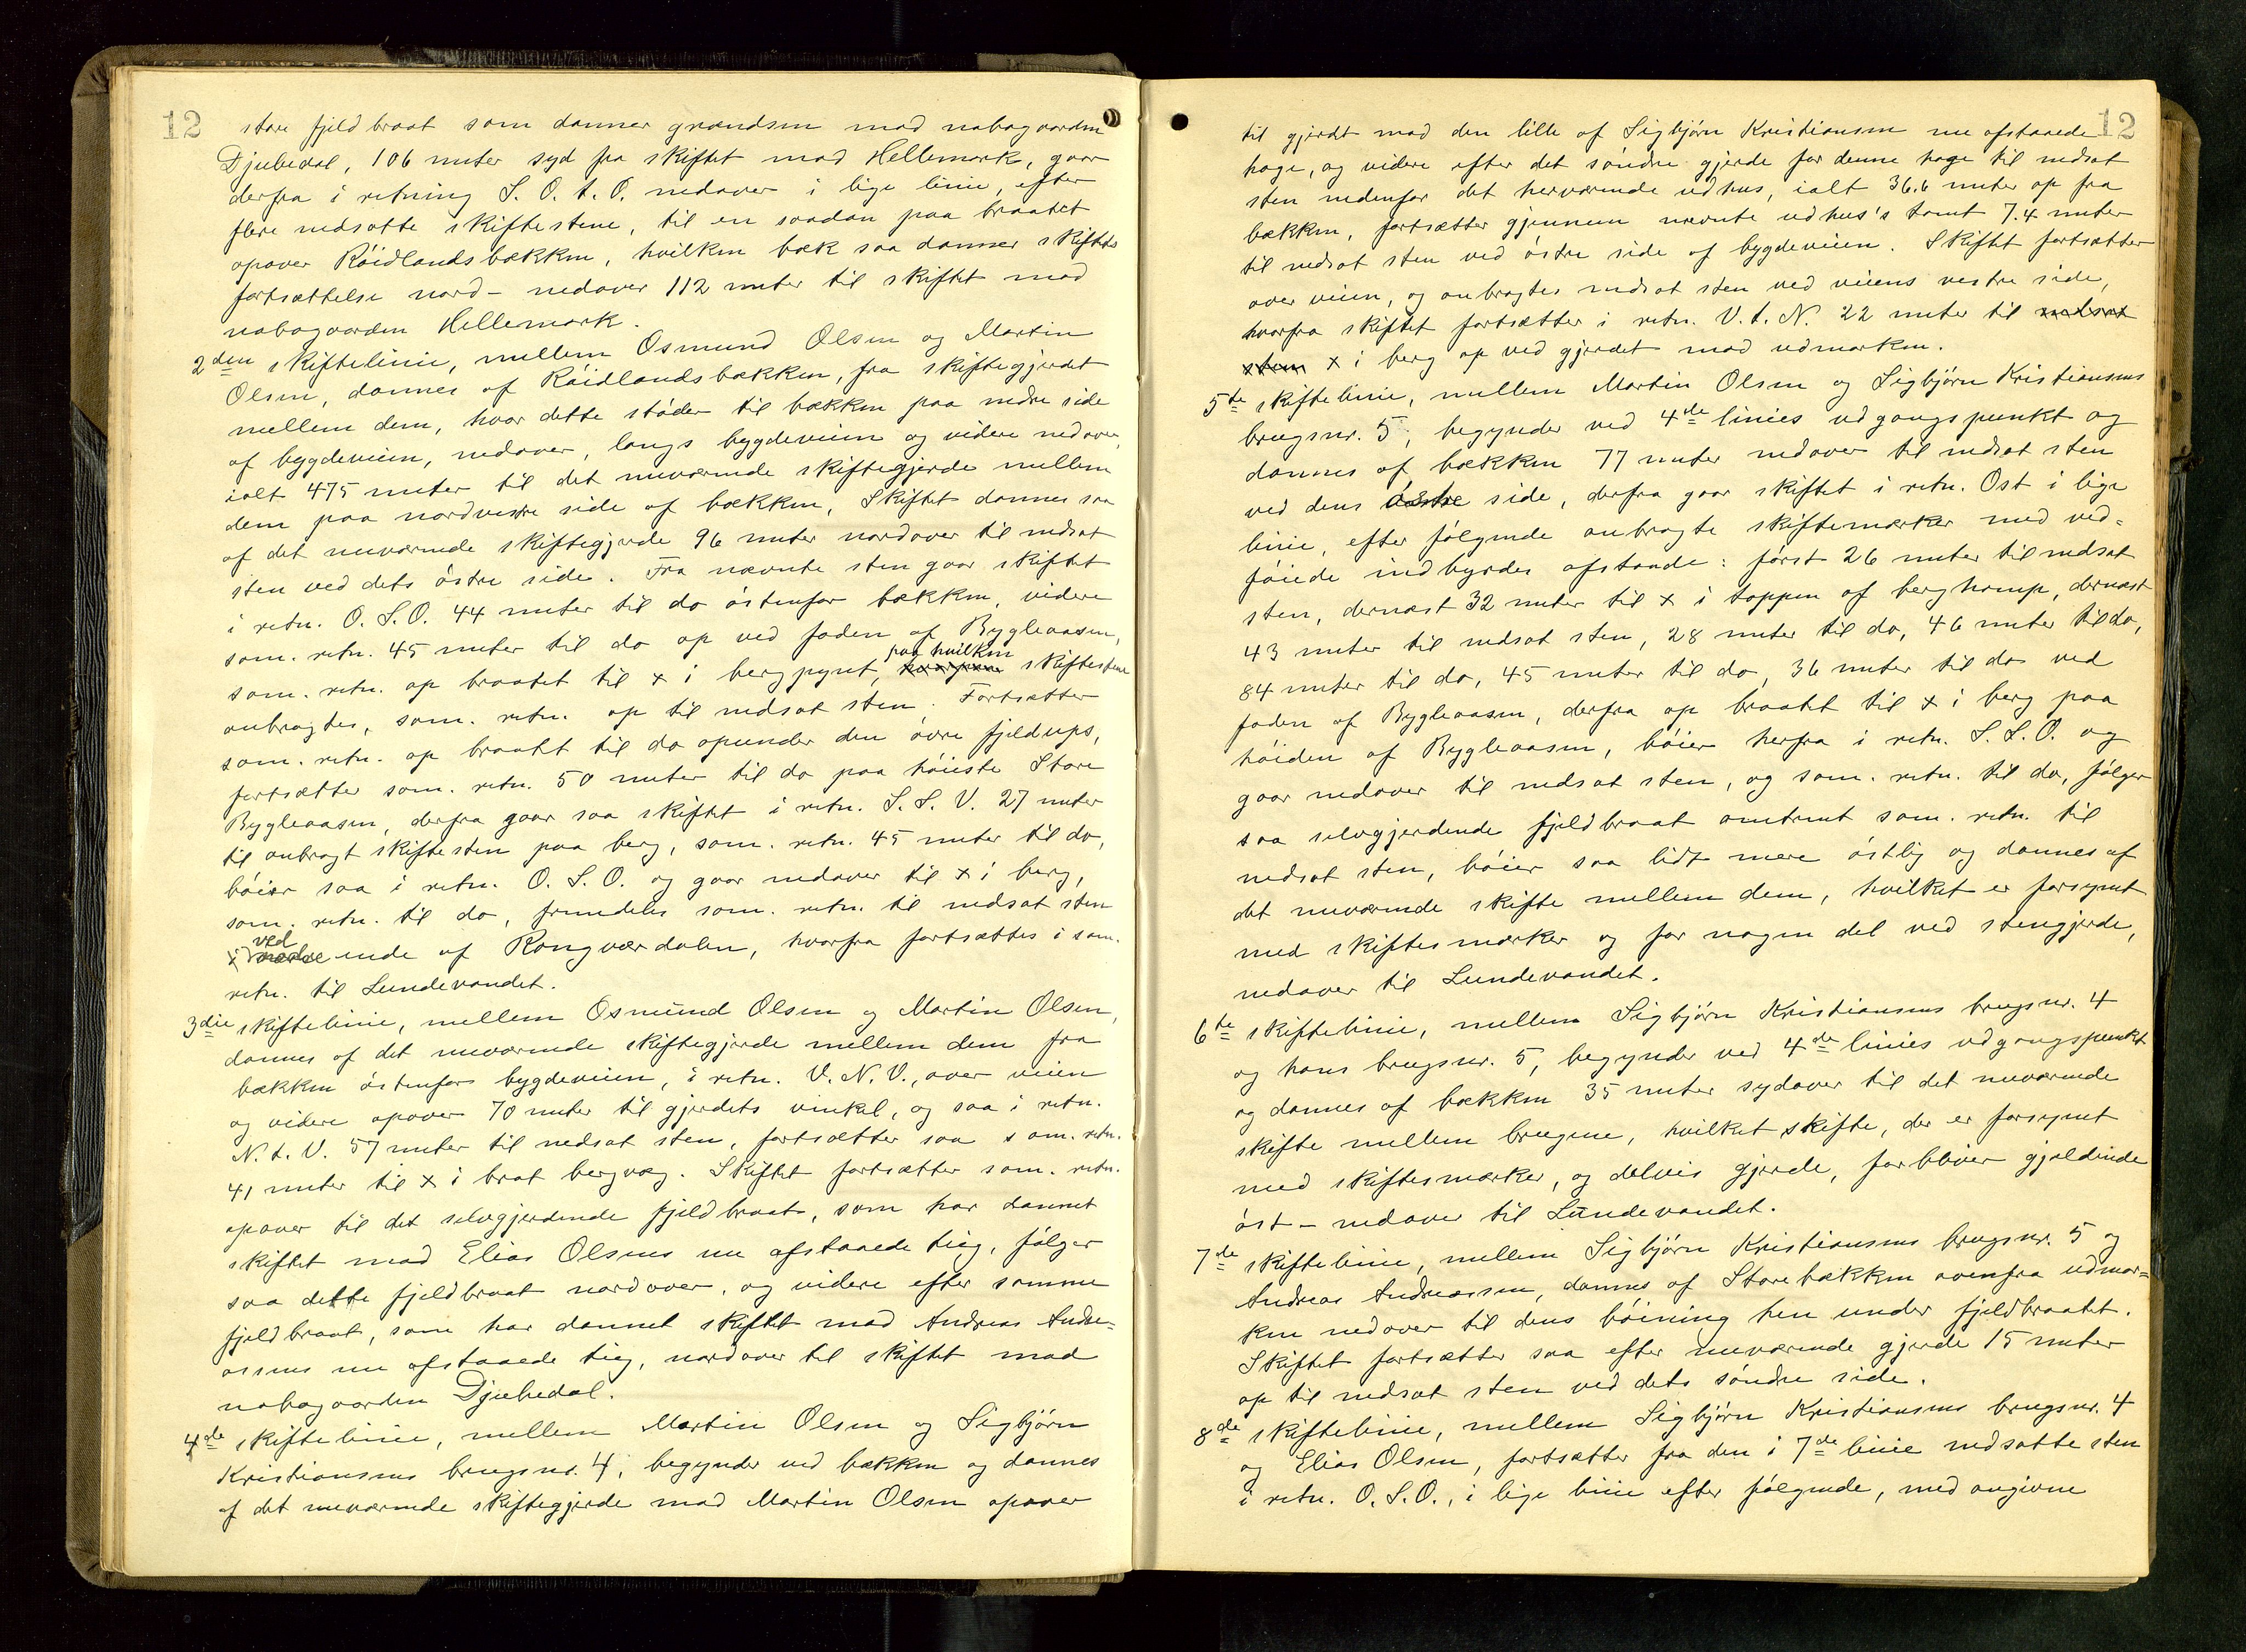 12
store fjeldbraat som danner grændsen mod nabogaarden
Djubedal, 106 meter syd fra skiftet mod Hellemark, gaar
derfra i retning S. O. t. O. nedover i lige linie, efter
flere nedsatte skiftestene, til en saadan paa braatet
opover Röidlandsbækken, hvilken bæk saa danner skiftets
fortsættelse nord - nedover 112 meter til skiftet mod
nabogaarden Hellemark.
2den skiftelinie, mellem Osmund Olsen og Martin
Olsen, dannes af Röidlandsbækken, fra skiftegjerdet
mellem dem, hvor dette stöder til bækken paa nedre side
af bygdeveien, nedover, langs bygdeveien og videre nedover,
ialt 475 meter til det nuværende skiftegjerde mellem
dem paa nordvestre side af bækken, Skiftet dannes saa
af det nuværende skiftegjerde 96 meter nordover til nedsat
sten ved dets östre side. Fra nævnte sten gaar skiftet
i retn. O. S. O. 44 meter til do östenfor bækken, videre
sam. retn. 45 meter til do op ved foden af Bygleaasen,
sam. retn. op braatet til x i bergpynt, paa hvilken skiftesten
anbragtes, sam. retn. op til nedsat sten. Fortsætter
sam. retn. op braatet til do opunder den övre fjeldups,
fortsætter sam. retn. 50 meter til do paa höieste Store
Bygleaasen, derfra gaar saa skiftet i retn. S. S. V. 27 meter
til anbragt skiftesten paa berg, sam. retn. 45 meter til do,
böier saa i retn. O. S. O. og gaar nedover til x i berg,
sam. retn. til do, fremdeles sam. retn. til nedsat sten
ved ende af Rongværdalen, hvorfra fortsættes i sam.
retn. til Lundevandet.
3die skiftelinie, mellem Osmund Olsen og Martin Olsen,
dannes af det nuværende skiftegjerde mellem dem fra
bækken östenfor bygdeveien, i retn. V. N. V., over veien
og videre opover 70 meter til gjerdets vinkel, og saa i retn.
N. t. V. 57 meter til nedsat sten, fortsætter saa sam. retn.
41 meter til x i brat bergvæg. Skiftet fortsætter sam. retn.
opover til det selvgjerdende fjeldbraat, som har dannet
skiftet mod Elias Olsens nu afstaaede teig, følger
saa dette fjeldbraat nordover, og videre efter samme
fjeldbraat, som har dannet skiftet mod Andreas Andre-
assens nu afstaaede teig, nordover til skiftet mod
nabogaarden Djubedal.
4de skiftelinie, mellem Martin Olsen og Sigbjörn
Kristiansens brugsnr. 4, begynder ved bækken og dannes
af det nuværende skiftegjerde mod Martin Olsen opover
12
til gjerdet mod den lille af Sigbjörn Kristiansen nu afstaaede
hage, og videre efter det söndre gjerde for denne hage til nedsat
sten nedenfor det herværende udhus, ialt 36.6 meter op fra
bækken, fortsætter gjennem nævnte udhus's tomt 7.4 meter
til nedsat sten ved östre side af bygdeveien. Skiftet fortsætter
over veien, og anbragtes nedsat sten ved veiens vestre side,
hvorfra skiftet fortsætter i retn. V. t. N. 22 meter til nedsat
sten x i berg op ved gjerdet mod udmarken.
5te skiftelinie, mellem Martin Olsen og Sigbjörn Kristiansens
brugsnr. 5, begynder ved 4de linies udgangspunkt og
dannes af bækken 77 meter nedover til nedsat sten
ved dens östre side, derfra gaar skiftet i retn. Ost i lige
linie, efter følgende anbragte skiftemærker med ved-
föiede indbyrdes afstande: först 26 meter til nedsat
sten, dernæst 32 meter til x i toppen af berghamp, dernæst
43 meter til nedsat sten, 28 meter til do, 46 meter til do,
84 meter til do, 45 meter til do, 36 meter til do ved
foden af Bygleaasen, derfra op braatet til x i berg paa
höiden af Bygleaasen, böier herfra i retn. S. S. O. og
gaar nedover til nedsat sten, og sam. retn. til do, følger
saa selvgjerdende fjeldbraat omtrent sam. retn. til
nedsat sten, böier saa lidt mere östlig og dannes af
det nuværende skifte mellem dem, hvilket er forsynet
med skiftesmærker og for nogen del ved stengjerde,
nedover til Lundevandet.
6te skiftelinie, mellem Sigbjörn Kristiansens brugsnr. 4
og hans brugsnr. 5, begynder ved 4de linies udgangspunkt
og dannes af bækken 35 meter sydover til det nuværende
skifte mellem brugene, hvilket skifte, der er forsynet
med skiftesmærker, og delvis gjerde, forbliver gjældende
öst - nedover til Lundevandet.
7de skiftelinie, mellem Sigbjörn Kristiansens brugsnr. 5 og
Andreas Andreassen, dannes af Storebækken ovenfra udmar-
ken nedover til dens böining hen under fjeldbraatet.
Skiftet fortsætter saa efter nuværende gjerde 15 meter
op til nedsat sten ved dets söndre side.
8de skiftelinie, mellem Sigbjörn Kristiansens brugsnr. 4
og Elias Olsen, fortsætter fra den i 7de linie nedsatte sten
i retn. O. S. O., i lige linie efter følgende, med angivne